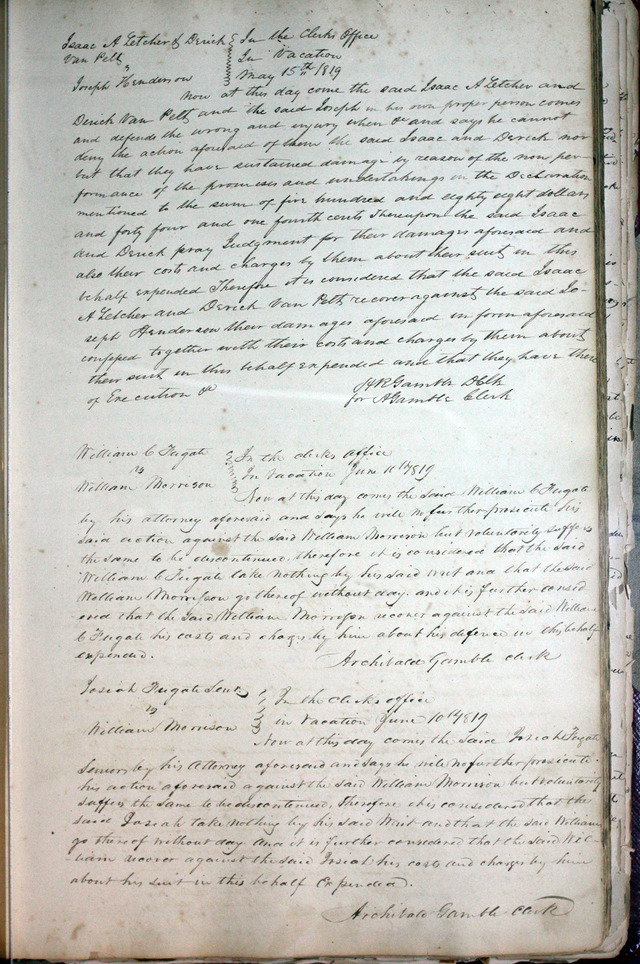 Isaac A Letcher & Derick In the Clerks Office
Van Pelt In Vacation
vs May 15th 1819
Joseph Henderson
Now at this day come the said Isaac A Letcher and
Derick Van Pelt and the said Joseph in his own proper person comes
and defends the wrong and injury when &c and says he cannot
deny the action aforesaid of them the said Isaac and Derick nor
but that they have sustained damage by reason of the non per-
formance of the promises and undertakings in the Declaration
mentioned to the sum of five hundred and eighty eight dollars
and forty four and one fourth cents Thereupon the said Isaac
and Derick pray Judgment for their damages aforesaid and
also their costs and charges by them about their suit in this
behalf expended Therefore it is considered that the said Isaac
A Letcher and Derick Van Pelt recover against the said Jo-
seph Henderson their damages aforesaid in form aforesaid
confessed together with their costs and charges by them about
their suit in this behalf expended and that they have there
of Execution &c
HR Gamble D Clk
for A Gamble Clerk
William C Fugate In the clerks office
vs In Vacation June 10th 1819
William Morrison
Now at this day comes the said William C Fugate
by his attorney aforesaid and says he will no further prosecute his
said action against the said William Morrison but voluntarily suffers
the same to be discontinued. Therefore it is considered that the said
William C Fugate take nothing by his said writ and that the said
William Morrison go thereof without day. and it is further consid
ered that the said William Morrison recover against the said William
C Fugate his costs and charges by him about his defence in this behalf
expended.
Archibald Gamble clerk
Josiah Fugate Senr In the Clerks office
vs in Vacation June 10th 1819
William Morrison
Now at this day comes the said Josiah Fugate
Senior by his Attorney aforesaid and says he will no further prosecute
his action aforesaid against the said William Morrison but voluntarily
suffers the same to be discontinued. Therefore it is considered that the
said Josiah take nothing by his said Writ and that the said William
go thereof without day. And it is further considered that the said Wil-
-liam recover against the said Josiah his costs and charges by him
about his suit in this behalf Expended.
Archibald Gamble Clerk